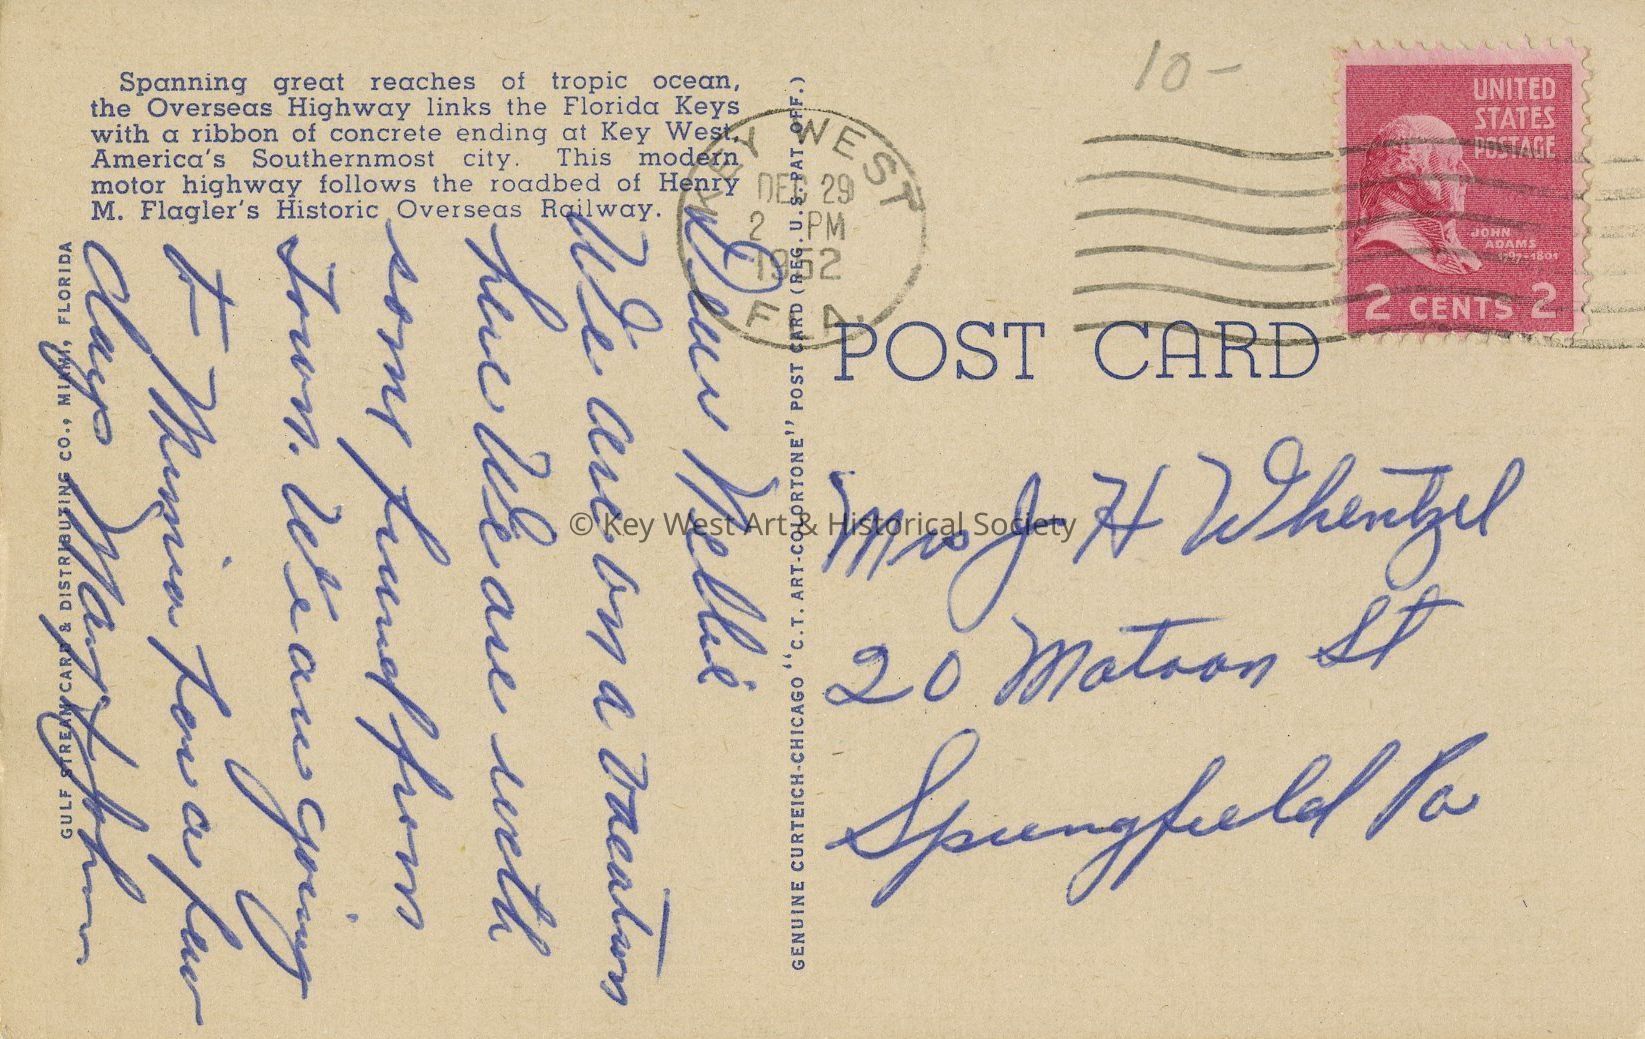 Spanning great reaches of tropic ocean,
the Overseas Highway links the Florida Keys
with a ribbon of concrete ending at Key West,
America's Southernmost city. This modern
motor highway follows the roadbed of Henry
M. Flagler's Historic Overseas Railway.
Dear Nellie
We are on a vacation
here We are with
some friends from
Town. We are going
to Miami for a few
days Mary & John
GULF STREAM CARD & DISTRIBUTING CO., MIAMI, FLORIDA
GENUINE CURTEICH-CHICAGO "C.T. ART-COLORTONE" POST CARD (REG. U.S. PAT. OF.)
10-
KEY WEST
DEC 29
2 PM
1952
FLA.
UNITED
STATES
POSTAGE
JOHN
ADAMS
1797-1801
2 CENTS 2
POST CARD
Mrs J H Whentzel
20 Matoon St
Springfield Pa
© Key West Art & Historical Society